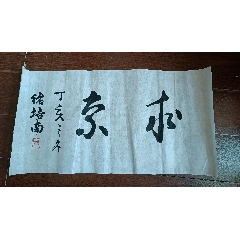 求索
丁亥之冬
培南